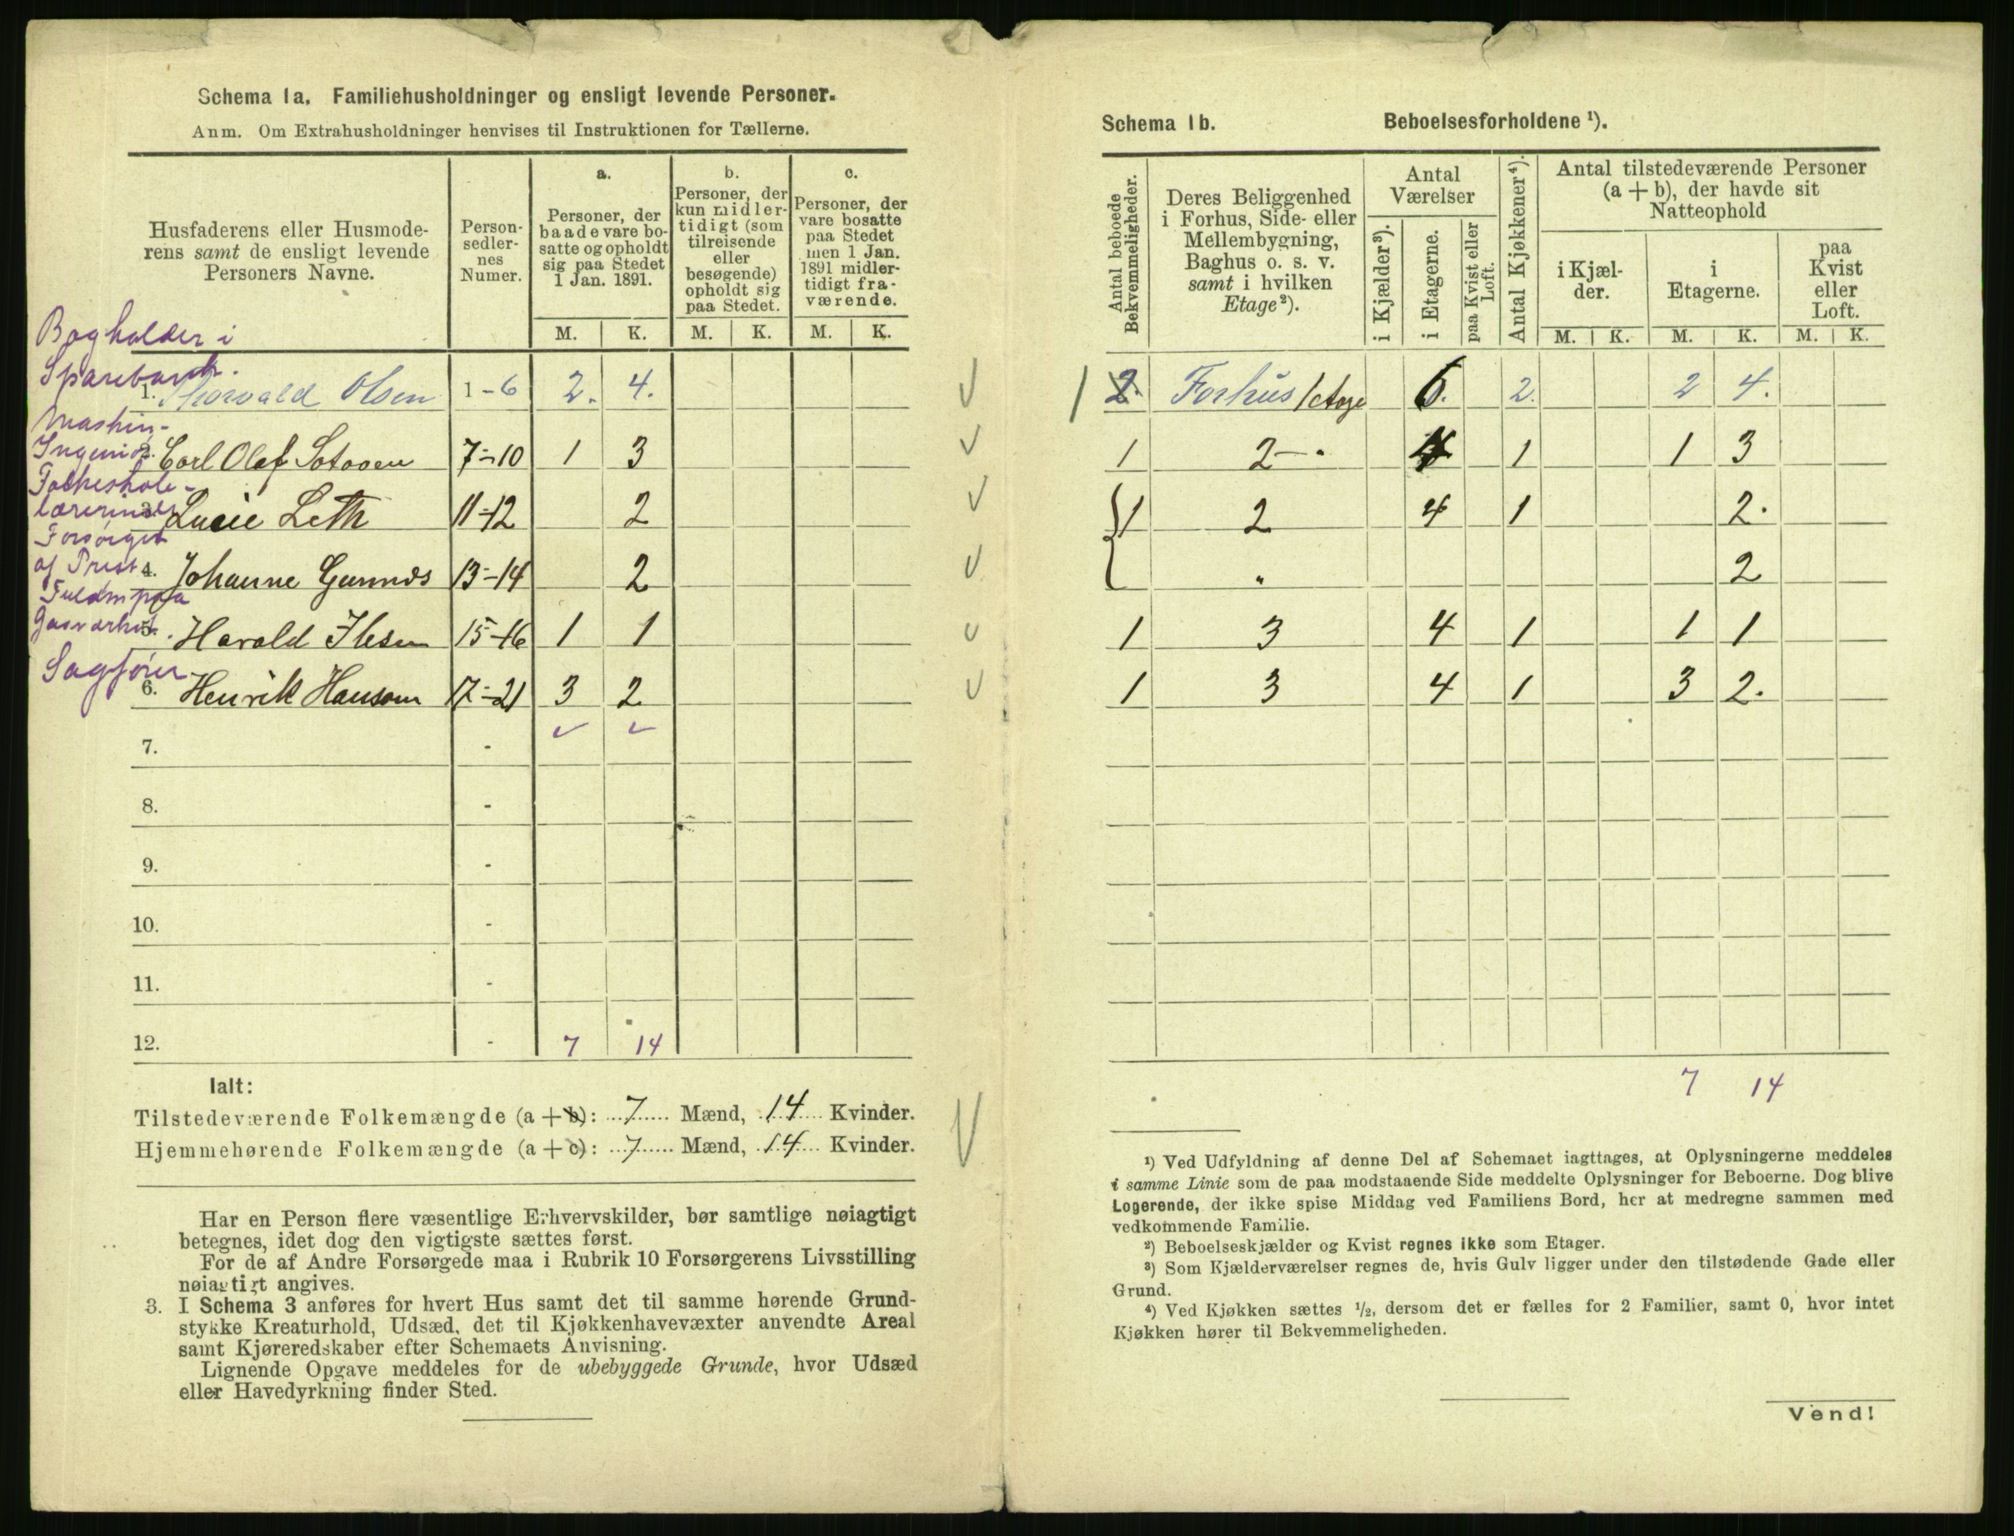 Schema 1a. Familiehusholdninger og ensligt levende Personer.
Anm. Om Extrahusholdninger henvises til Instruktionen for Tællerne.
Husfaderens eller Husmoderens samt de ensligt levende Personers Navne.
Person-sedlernes Numer.
a. Personer, der baade vare bosatte og opholdt sig paa Stedet 1 Jan. 1891.
b. Personer, der kun midlertidigt (som tilreisende eller besøgende) opholdt sig paa Stedet.
c. Personer, der vare bosatte paa Stedet men 1 Jan. 1891 midlertidigt fraværende.
M. K. M. K. M. K.
Bogholder i Sparebank.
1. Thorvald Olsen 1-6 2. 4.
Maskin-Ingeniør
2. Carl Olaf 7-10 1 3
Folkeskole-lærerinde
3. Lucie Leth 11-12 2
Forsørget af Prest
4. Johanne 13-14 2
Fuldm paa Gasværket
5. Harald Ibsen 15-16 1 1
Sagfører
6. Henrik Hansom 17-21 3 2
7. -
8. -
9. -
10. -
11. -
12. - 7 14
Ialt:
Tilstedeværende Folkemængde (a+b): 7 Mænd, 14 Kvinder.
Hjemmehørende Folkemængde (a+c): 7 Mænd, 14 Kvinder.
Har en Person flere væsentlige Erhvervskilder, bør samtlige nøiagtigt
betegnes, idet dog den vigtigste sættes først.
For de af Andre Forsørgede maa i Rubrik 10 Forsørgerens Livsstilling
nøiagtigt angives.
3. I Schema 3 anføres for hvert Hus samt det til samme hørende Grund-
stykke Kreaturhold, Udsæd, det til Kjøkkenhavevæxter anvendte Areal
samt Kjøreredskaber efter Schemaets Anvisning.
Lignende Opgave meddeles for de ubebyggede Grunde, hvor Udsæd
eller Havedyrkning finder Sted.
Schema 1b. Beboelsesforholdene ¹).
Antal beboede Bekvemmeligheder.
Deres Beliggenhed i Forhus, Side- eller Mellembygning, Baghus o. s. v. samt i hvilken Etage²).
Antal Værelser
i Kjælder³).
i Etagerne.
paa Kvist eller Loft.
Antal Kjøkkener⁴).
Antal tilstedeværende Personer (a+b), der havde sit Natteophold
i Kjælder.
i Etagerne.
paa Kvist eller Loft.
M. K. M. K. M. K.
1 2. Forhus 1 etage 6. 2. 2 4.
1 2 4 1 1 3
1 2 4 1 2.
" 2
1 3 4 1 1 1
1 3 4 1 3 2.
7 14
¹) Ved Udfyldning af denne Del af Schemaet iagttages, at Oplysningerne meddeles
i samme Linie som de paa modstaaende Side meddelte Oplysninger for Beboerne. Dog blive
Logerende, der ikke spise Middag ved Familiens Bord, her at medregne sammen med
vedkommende Familie.
²) Beboelseskjælder og Kvist regnes ikke som Etager.
³) Som Kjælderværelser regnes de, hvis Gulv ligger under den tilstødende Gade eller
Grund.
⁴) Ved Kjøkken sættes ½, dersom det er fælles for 2 Familier, samt 0, hvor intet
Kjøkken hører til Bekvemmeligheden.
Vend!